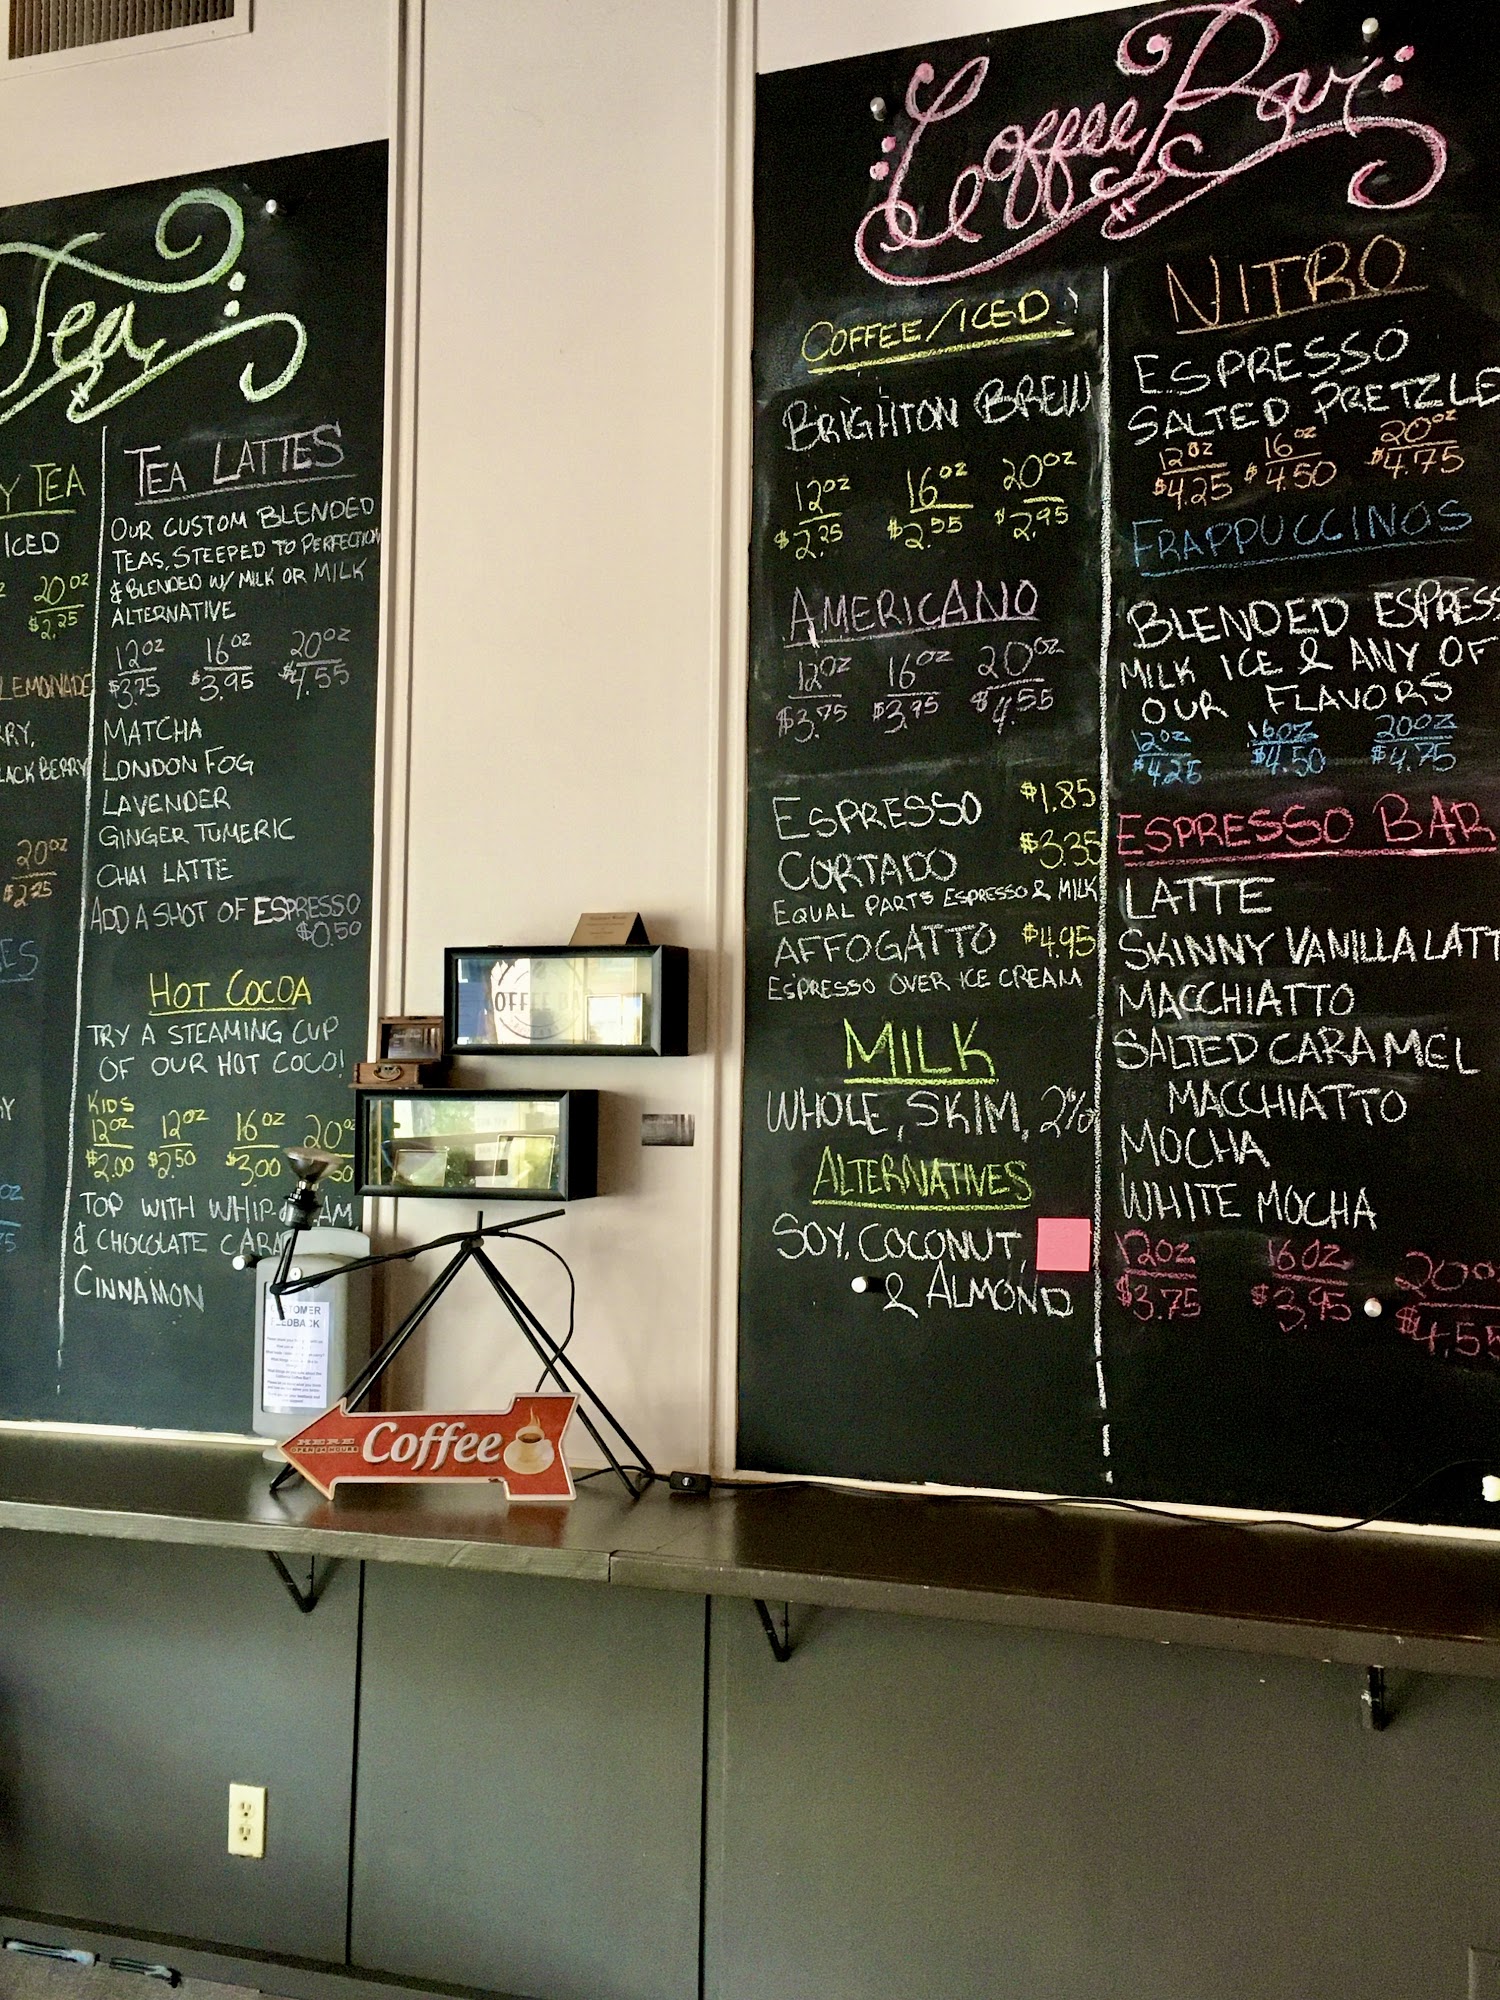 Tea
Y TEA
ICED
20oz
$2.25
LEMONADE
RRY,
LACK BERRY
20oz
$2.25
ES
TEA LATTES
OUR CUSTOM BLENDED
TEAS, STEEPED TO PERFECTION
& BLENDED W/ MILK OR MILK
ALTERNATIVE
12oz 16oz 20oz
$3.75 $3.95 $4.55
MATCHA
LONDON FOG
LAVENDER
GINGER TUMERIC
CHAI LATTE
ADD A SHOT OF ESPRESSO
$0.50
HOT COCOA
TRY A STEAMING CUP
OF OUR HOT COCO!
KIDS
12oz 12oz 16oz 20oz
$2.00 $2.50 $3.00 50
TOP WITH WHIP AM,
& CHOCOLATE CARA
CINNAMON
CUSTOMER
FEEDBACK
OFFEE BA
HERE
OPEN 24 HOURS
Coffee
Coffee Bar
COFFEE/ICED
BRIGHTON BREW
12oz 16oz 20oz
$2.25 $2.55 $2.95
AMERICANO
12oz 16oz 20oz
$3.75 $3.95 $4.55
ESPRESSO $1.85
CORTADO $3.35
EQUAL PARTS ESPRESSO & MILK
AFFOGATTO $4.95
ESPRESSO OVER ICE CREAM
MILK
WHOLE, SKIM, 2%
ALTERNATIVES
SOY, COCONUT,
& ALMOND
NITRO
ESPRESSO
SALTED PRETZLE
12oz 16oz 20oz
$4.25 $4.50 $4.75
FRAPPUCCINOS
BLENDED ESPRESS
MILK ICE & ANY OF
OUR FLAVORS
12oz 16oz 20oz
$4.25 $4.50 $4.75
ESPRESSO BAR
LATTE
SKINNY VANILLA LATT
MACCHIATTO
SALTED CARAMEL
MACCHIATTO
MOCHA
WHITE MOCHA
12oz 16oz 20oz
$3.75 $3.95 $4.55